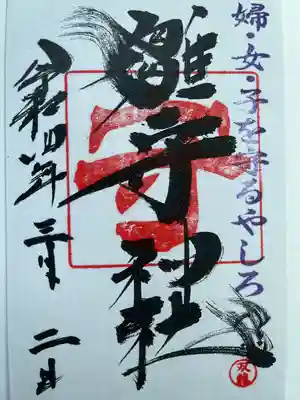 婦・女・子を守るやしろ
雛守神社
令和四年 三月 二日